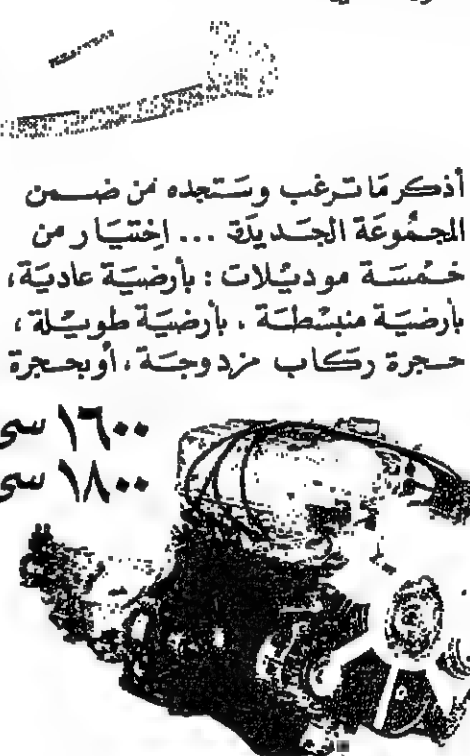 أذكر ما ترغب وستجده من ضمن
المجموعة الجديدة ... اختيار من
خمسة موديلات : بأرضية عادية،
بأرضية منبسطة ، بأرضية طويلة ،
حجرة ركاب مزدوجة ، أو بحجرة
١٦٠٠ سي
١٨٠٠ سي